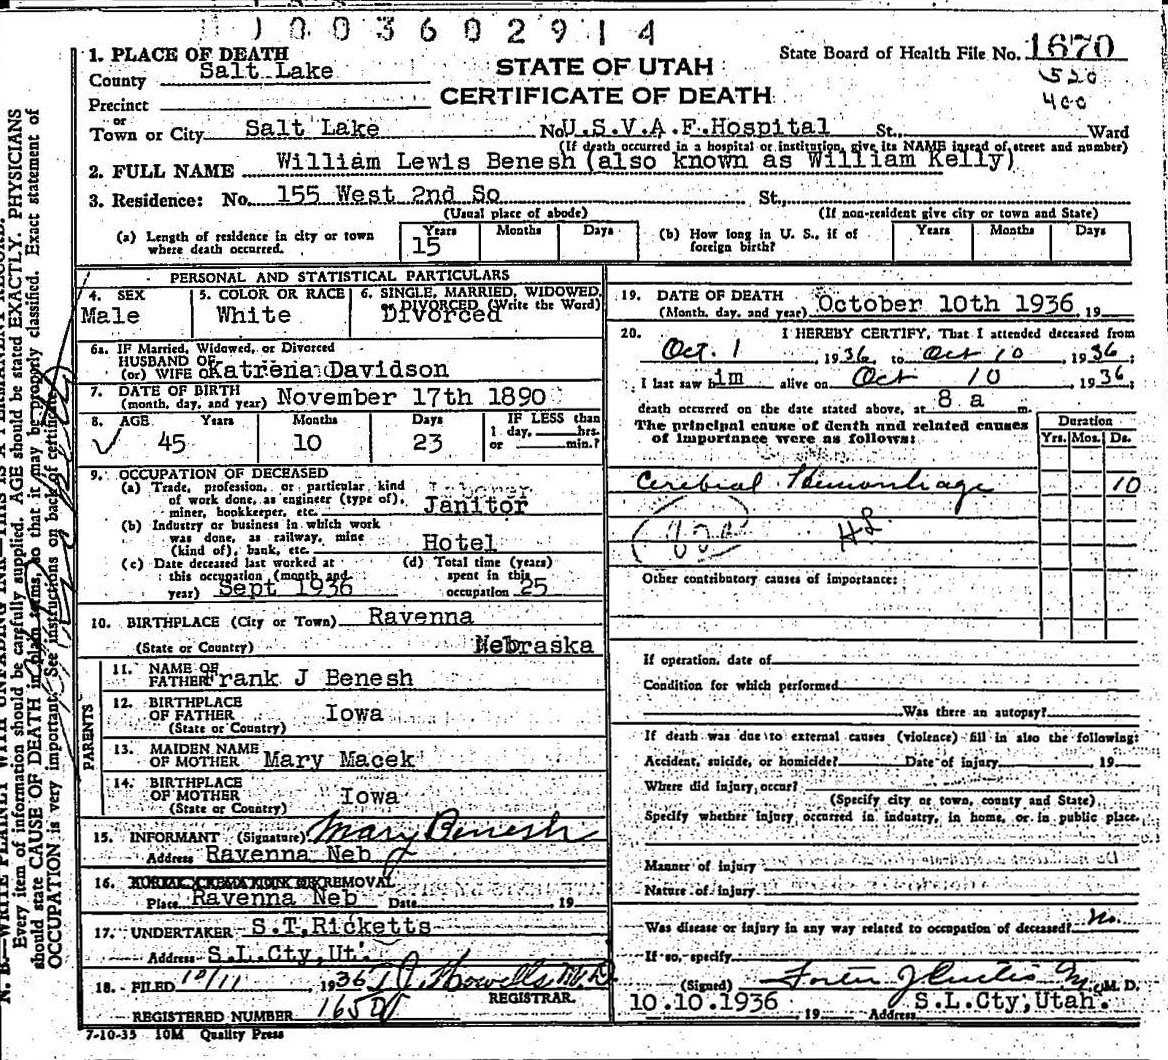 1003602914
1. PLACE OF DEATH
State Board of Health File No. 1670
County Salt Lake
STATE OF UTAH
520
Precinct
CERTIFICATE OF DEATH
400
or
Town or City Salt Lake No. U.S.V.A.F. Hospital St., Ward
(If death occurred in a hospital or institution, give its NAME instead of street and number)
2. FULL NAME William Lewis Benesh (also known as William Kelly)
3. Residence: No. 155 West 2nd So St.,
(Usual place of abode) (If non-resident give city or town and State)
(a) Length of residence in city or town where death occurred. Years 15 Months Days
(b) How long in U. S., if of foreign birth? Years Months Days
PERSONAL AND STATISTICAL PARTICULARS
4. SEX Male
5. COLOR OR RACE White
6. SINGLE, MARRIED, WIDOWED, or DIVORCED (Write the Word) Divorced
6a. IF Married, Widowed, or Divorced
HUSBAND OF
(or) WIFE OF Katrena Davidson
7. DATE OF BIRTH
(month, day, and year) November 17th 1890
8. AGE Years 45 Months 10 Days 23 IF LESS than
1 day, hrs.
or min.?
9. OCCUPATION OF DECEASED
(a) Trade, profession, or particular kind
of work done, as engineer (type of),
miner, bookkeeper, etc. Janitor
(b) Industry or business in which work
was done, as railway, mine
(kind of), bank, etc. Hotel
(c) Date deceased last worked at
this occupation (month and
year) Sept 1936
(d) Total time (years)
spent in this
occupation 25
10. BIRTHPLACE (City or Town) Ravenna
(State or Country) Nebraska
PARENTS
11. NAME OF
FATHER Frank J Benesh
12. BIRTHPLACE
OF FATHER Iowa
(State or Country)
13. MAIDEN NAME
OF MOTHER Mary Macek
14. BIRTHPLACE
OF MOTHER Iowa
(State or Country)
15. INFORMANT (Signature) Mary Benesh
Address Ravenna Neb
16. BURIAL, CREMATION OR REMOVAL
Place Ravenna Neb Date 19
17. UNDERTAKER S.T. Ricketts
Address S.L.Cty, Ut.
18. FILED 10/11, 1936 T J Howells M.D.
REGISTRAR.
REGISTERED NUMBER 1650
7-10-35 10M Quality Press
19. DATE OF DEATH
(Month, day, and year) October 10th 1936, 19
20. I HEREBY CERTIFY, That I attended deceased from
Oct. 1 1936, to Oct 10, 1936;
I last saw him alive on Oct 10, 1936;
death occurred on the date stated above, at 8 a m.
The principal cause of death and related causes
of importance were as follows:
Duration
Yrs. Mos. Ds.
Cerebral Hemorrhage 10
Other contributory causes of importance:
If operation, date of
Condition for which performed
Was there an autopsy?
If death was due to external causes (violence) fill in also the following:
Accident, suicide, or homicide? Date of injury 19
Where did injury occur?
(Specify city or town, county and State)
Specify whether injury occurred in industry, in home, or in public place.
Manner of injury
Nature of injury
Was disease or injury in any way related to occupation of deceased? No.
If so, specify
(Signed) Foster J Curtis M. D.
10.10.1936 19 Address S.L.Cty, Utah.
N. B.—WRITE PLAINLY WITH UNFADING INK—THIS IS A PERMANENT RECORD.
Every item of information should be carefully supplied. AGE should be stated EXACTLY. PHYSICIANS
should state CAUSE OF DEATH in plain terms, so that it may be properly classified. Exact statement of
OCCUPATION is very important. See instructions on back of certificate.